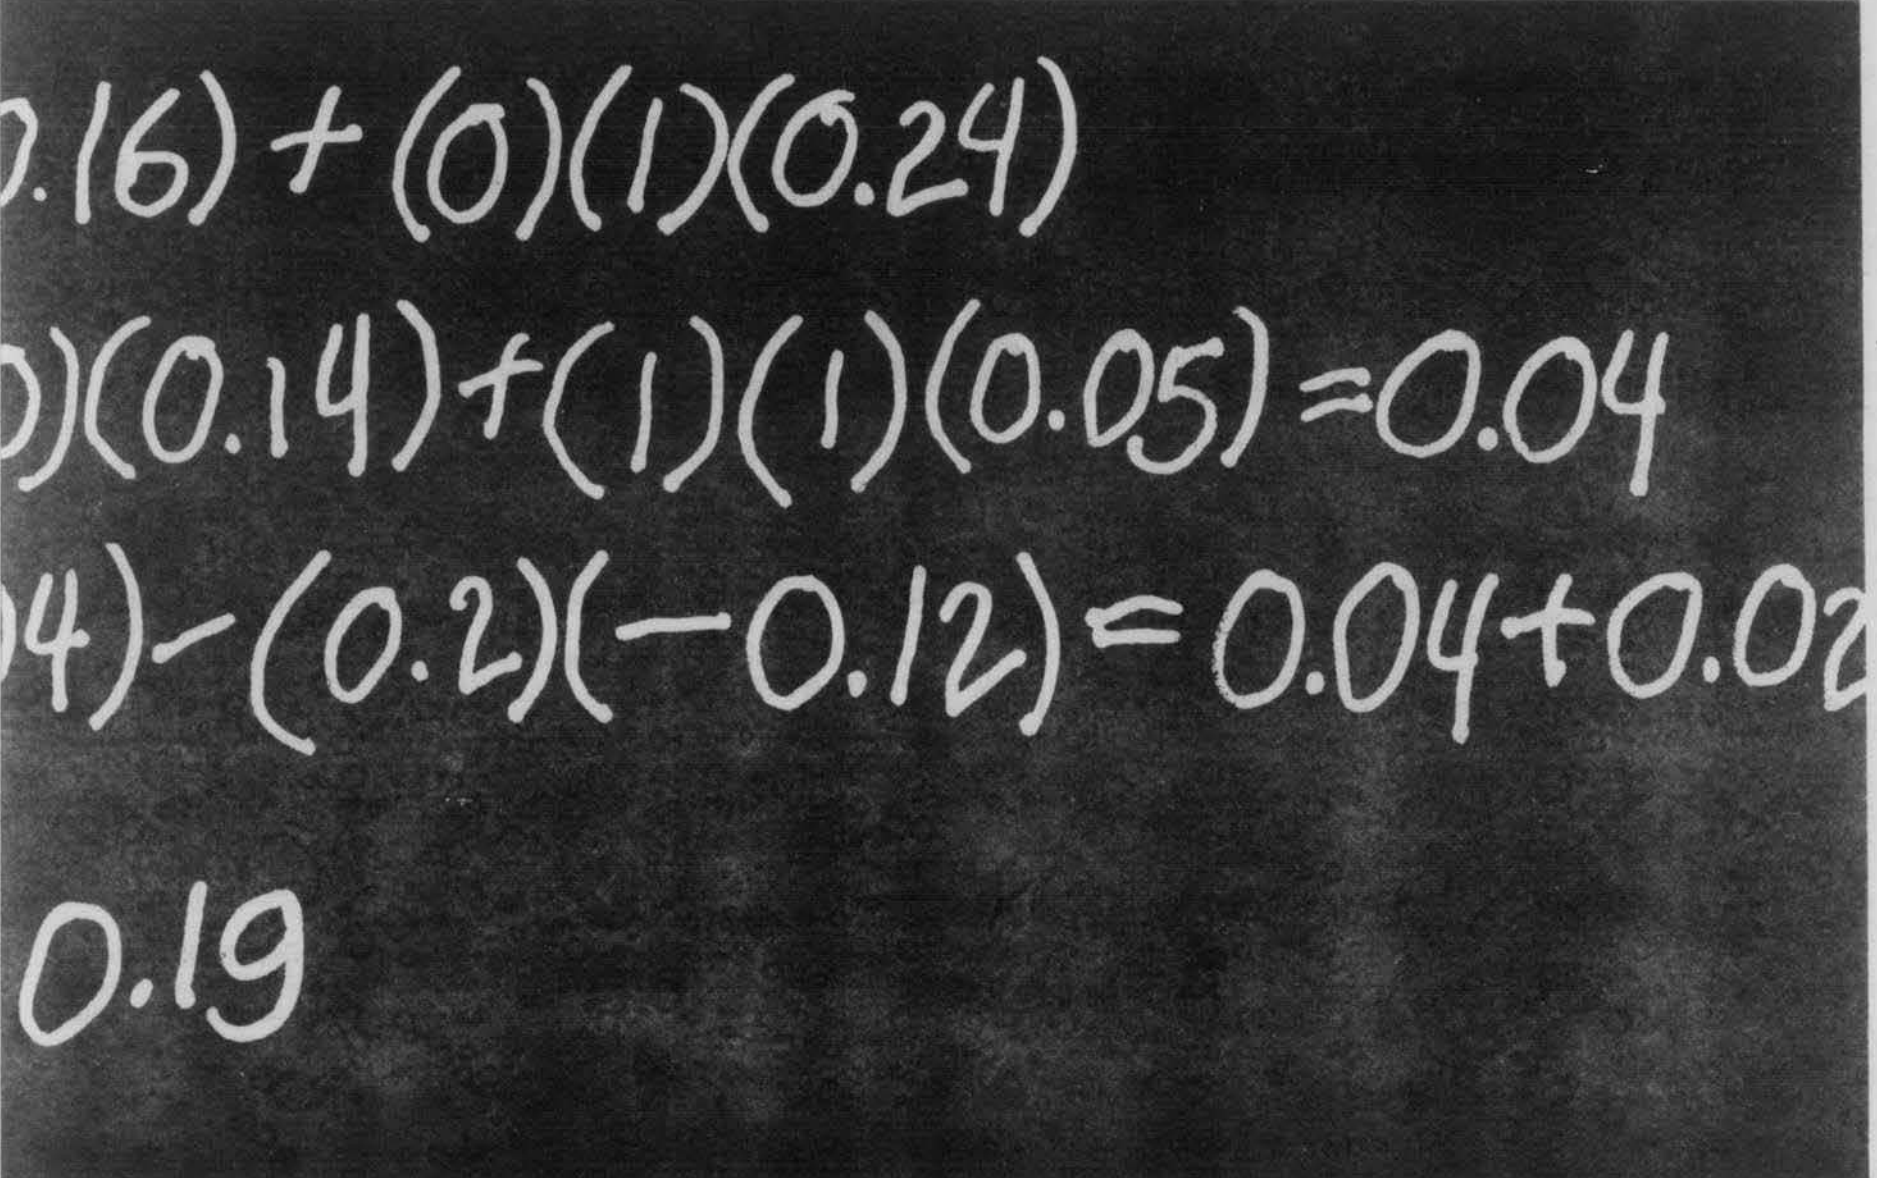 0.16) + (0)(1)(0.24)
0)(0.14) + (1)(1)(0.05) = 0.04
04) - (0.2)(-0.12) = 0.04 + 0.02
0.19